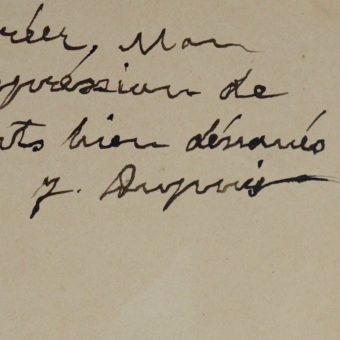 réer, Mon
pression de
ts bien dévoués
J. Dupuis